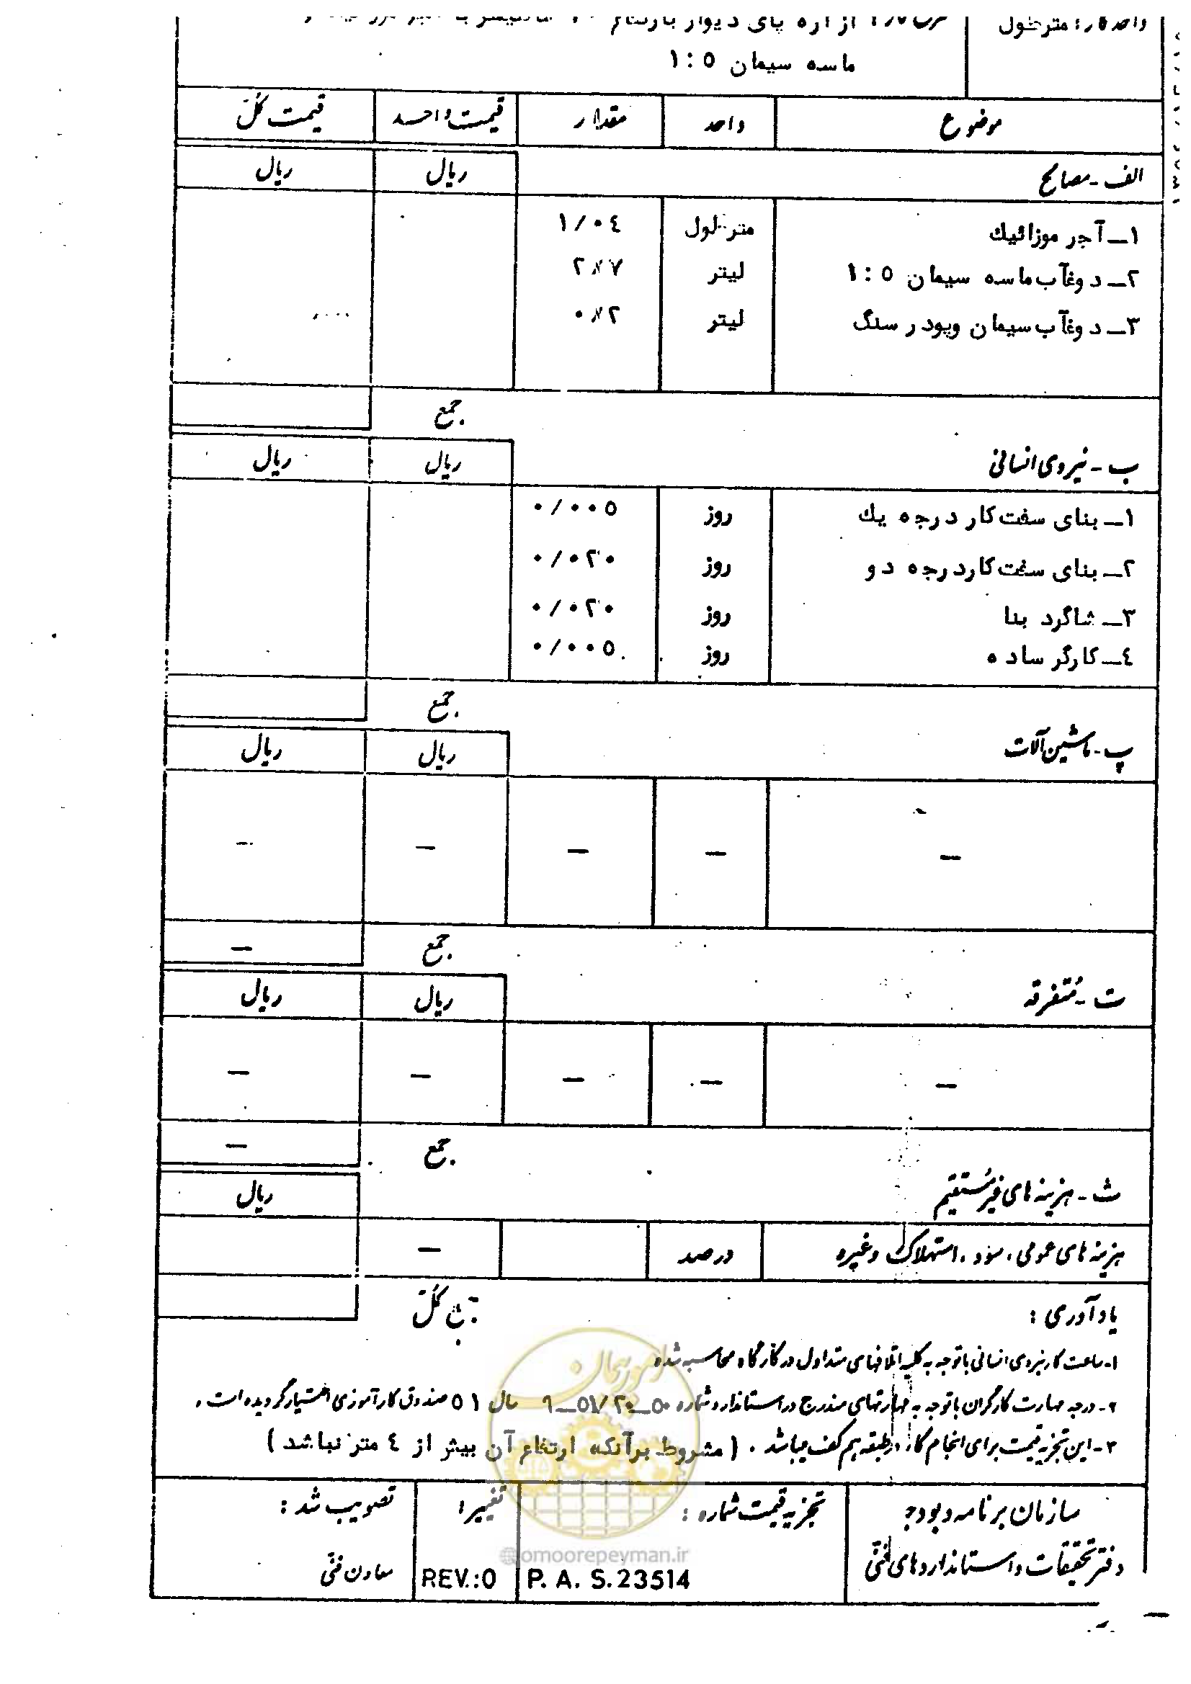 واحد کار : متر طول
شرح کار : از اره پای دیوار بارتفاع
ماسه سیمان ۱:۵
موضوع واحد مقدار قیمت واحد قیمت کل
الف - مصالح ریال ریال
۱ــ آجر موزائیك متر طول ۱/۰٤
۲ــ دوغآب ماسه سیمان ۱:۵ لیتر ۲/۷
۳ــ دوغآب سیمان وپودر سنگ لیتر ۰/۲
جمع
ب - نیروی انسانی ریال ریال
۱ــ بنای سفت کار درجه یك روز ۰/۰۰۵
۲ــ بنای سفت کار درجه دو روز ۰/۰۲۰
۳ــ شاگرد بنا روز ۰/۰۲۰
٤ــ کارگر ساده روز ۰/۰۰۵
جمع
پ - ماشین آلات ریال ریال
— — — — —
جمع —
ت - متفرقه ریال ریال
— — — — —
جمع —
ث - هزینه های غیر مستقیم ریال
هزینه های عمومی ، سود ، استهلاک وغیره درصد —
جمع کل
یادآوری :
۱- ساعت کار نیروی انسانی با توجه به کلیه اتلافهای متداول در کارگاه محاسبه شده
۲- درجه مهارت کارگران با توجه به مهارتهای مندرج در استاندارد شماره ۵۰ــ۲۰/۵۱ــ۹ سال ۵۱ صندوق کارآموزی اختیار گردیده است .
۳- این تجزیه قیمت برای انجام کار در طبقه هم کف میباشد . ( مشروط برآنکه ارتفاع آن بیش از ٤ متر نباشد )
سازمان برنامه و بودجه
دفتر تحقیقات و استانداردهای فنی
تجزیه قیمت شماره :
P. A. S.23514
تغییر :
REV.:0
تصویب شد :
معاون فنی
امور پیمان
@omoorepeyman.ir